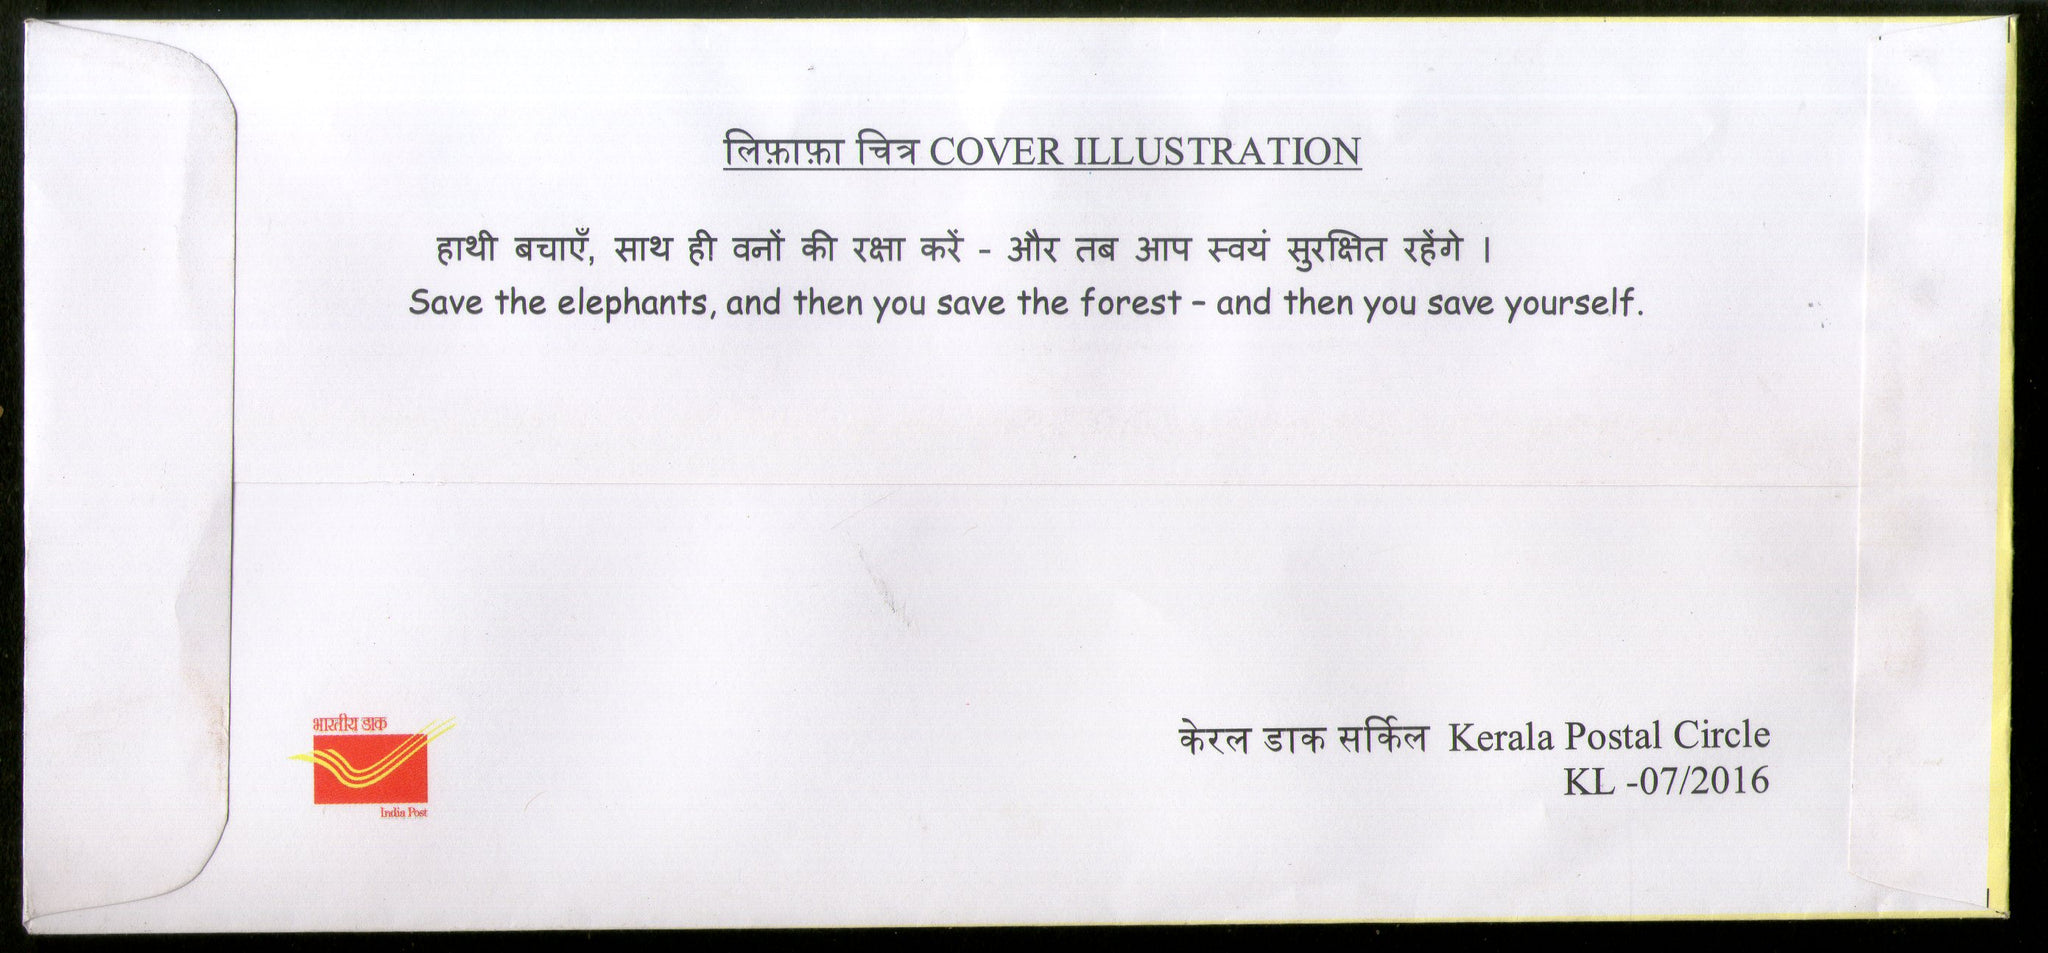 लिफ़ाफ़ा चित्र COVER ILLUSTRATION
हाथी बचाएँ, साथ ही वनों की रक्षा करें - और तब आप स्वयं सुरक्षित रहेंगे ।
Save the elephants, and then you save the forest – and then you save yourself.
भारतीय डाक
India Post
केरल डाक सर्किल Kerala Postal Circle
KL -07/2016